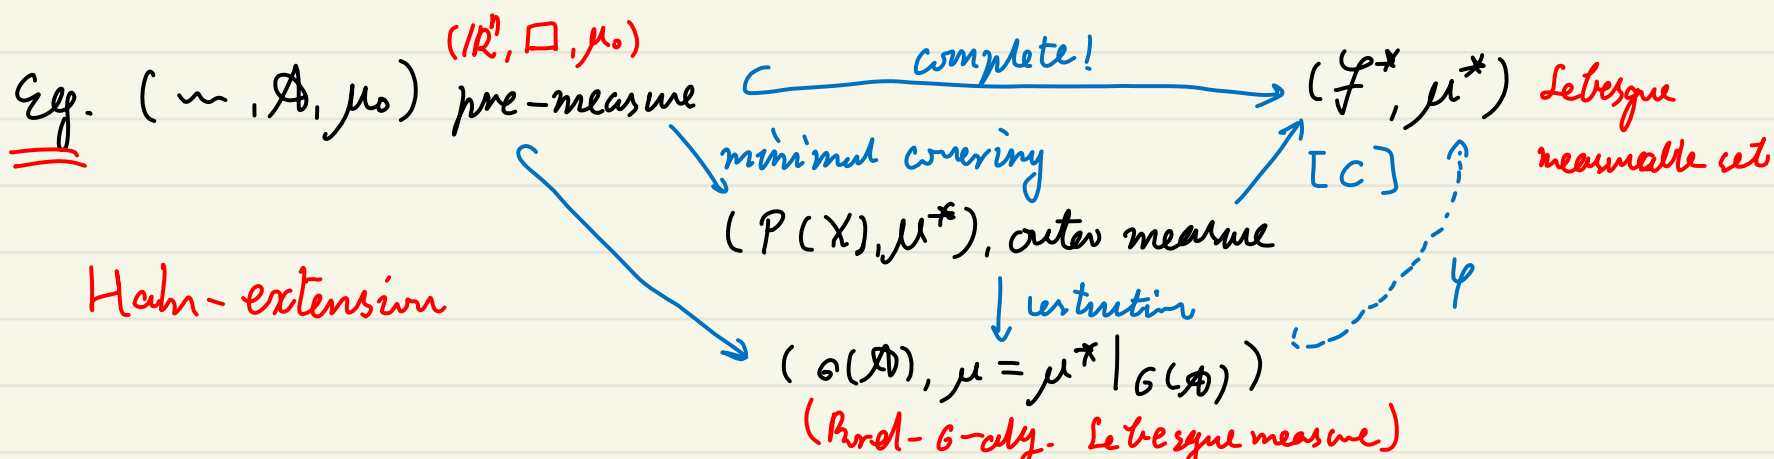 (ℝⁿ, □, μ₀)
Eg. (~, 𝔸, μ₀) pre-measure
complete!
(𝓕*, μ*) Lebesgue
measurable set
minimal covering
[C]
(P(X), μ*), outer measure
Hahn-extension
restriction
φ
(σ(𝔸), μ = μ*|σ(𝔸))
(Borel-σ-alg. Lebesgue measure)